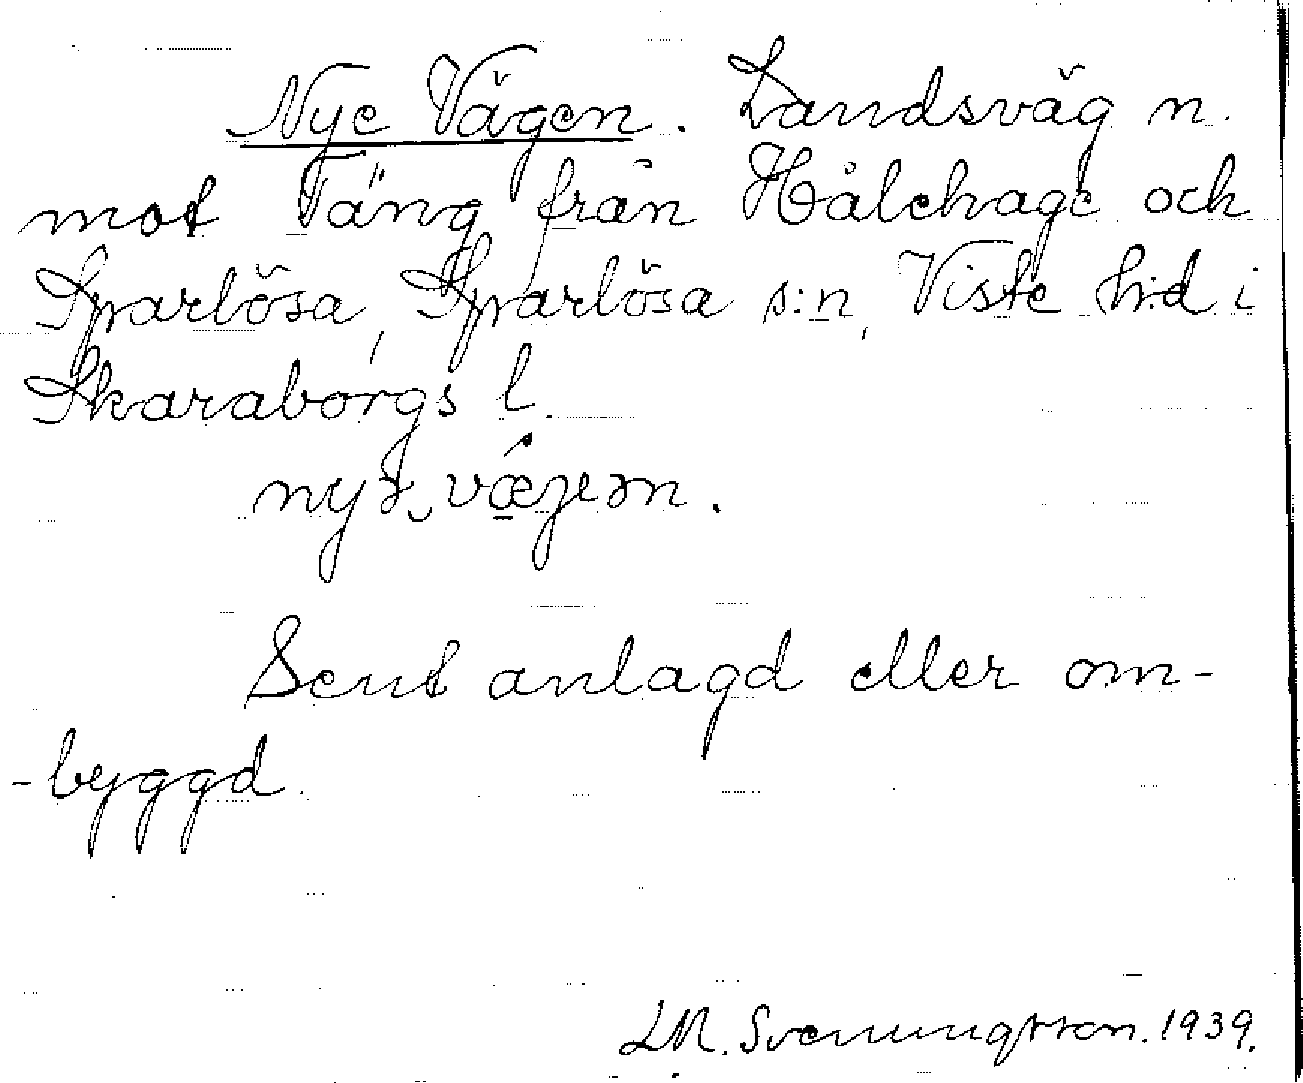 Nye Vägen. Landsväg n.
mot Täng från Hålehage och
Sparlösa, Sparlösa s:n, Viste h:d i
Skaraborgs l.
Sent anlagd eller om-
-byggd.
1939.